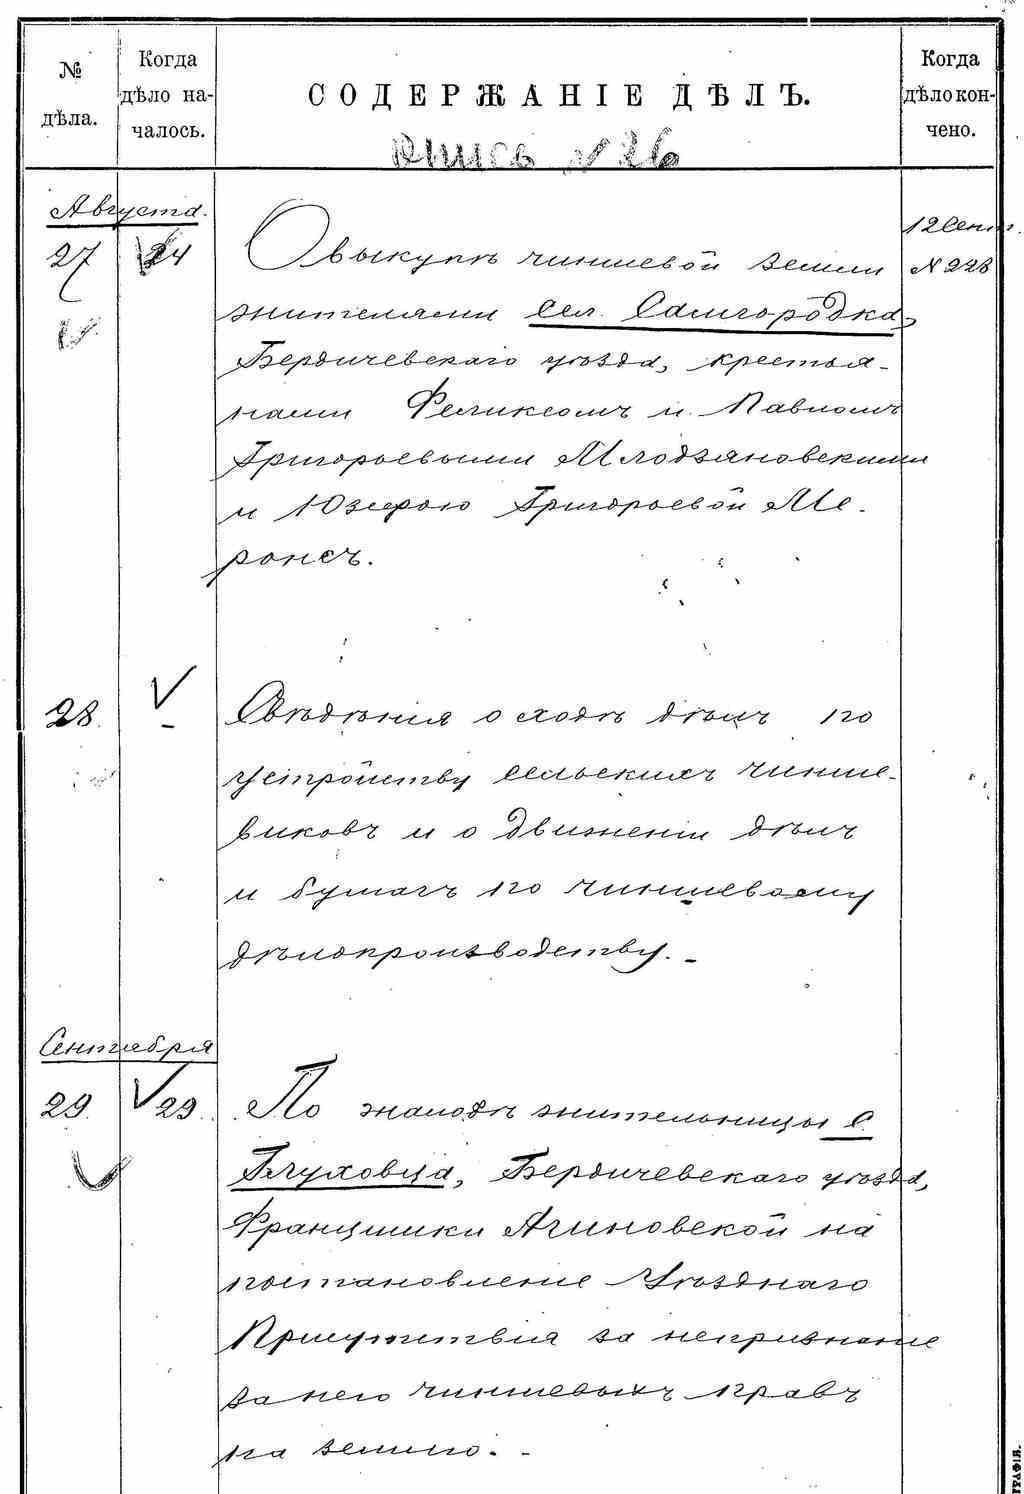 № дѣла.
Когда дѣло на-
чалось.
СОДЕРЖАНІЕ ДѢЛЪ.
Когда дѣло кон-
чено.
Опись № 26
Августа.
27 24 О выкупѣ чиншевой земли
12 Сент.
№ 228
жителями сел. Самгородка,
Бердичевскаго уѣзда, крестья-
нами Феликсомъ и Павломъ
Григорьевыми Млодзяновскими
и Юзефою Григорьевой Ме-
ронсъ.
28. Свѣдѣнія о ходѣ дѣлъ по
устройству сельскихъ чинше-
виковъ и о движеніи дѣлъ
и бумагъ по чиншевому
дѣлопроизводству.
Сентября
29. 29. По жалобѣ жительницы с.
Глуховца, Бердичевскаго уѣзда,
Францишки Агиновской на
постановленіе Уѣзднаго
Присутствія за непризнаніе
за нею чиншевыхъ правъ
на землю.